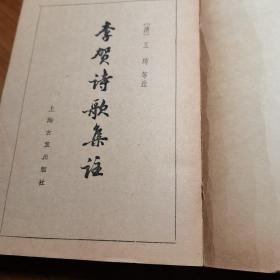 〔清〕王琦等注
李贺诗歌集注
上海古籍出版社